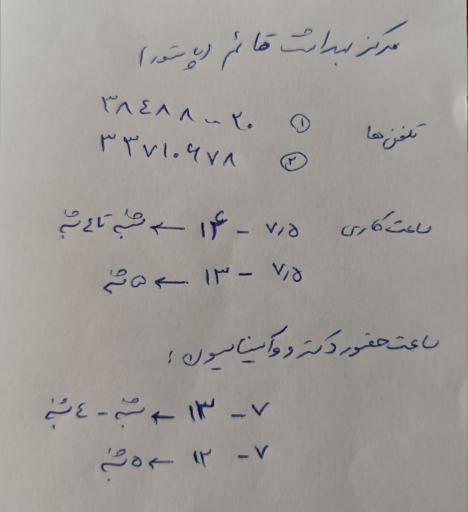 مرکز بهداشت قائم (پاستور)
تلفن ها ① ۳۸۴۸۸۰۰۲۰
② ۳۳۷۱۰۶۷۸
ساعت کاری ۷٫۵ - ۱۴ ← شنبه تا ۴ شنبه
۷٫۵ - ۱۳ ← ۵ شنبه
ساعت حضور دکتر و واکسیناسیون :
۷ - ۱۳ ← شنبه - ۴ شنبه
۷ - ۱۲ ← ۵ شنبه